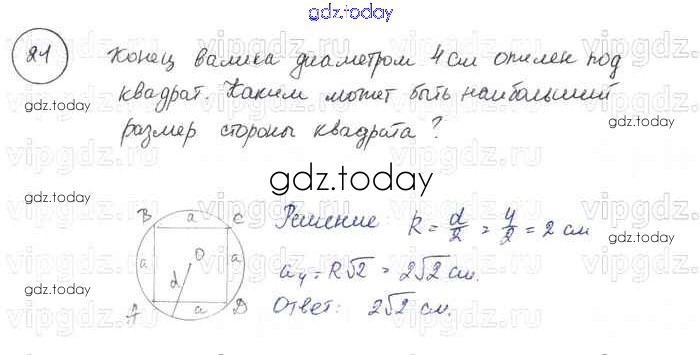 gdz.today
21 Конец валика диаметром 4 см опилен под
квадрат. Каким может быть наибольший
размер стороны квадрата?
gdz.today
gdz.today
gdz.today
B a C
a O a
d
A a D
Решение: R = d/2 = 4/2 = 2 см
a₄ = R√2 = 2√2 см.
Ответ: 2√2 см.
gdz.today
gdz.today
gdz.today
vipgdz.ru